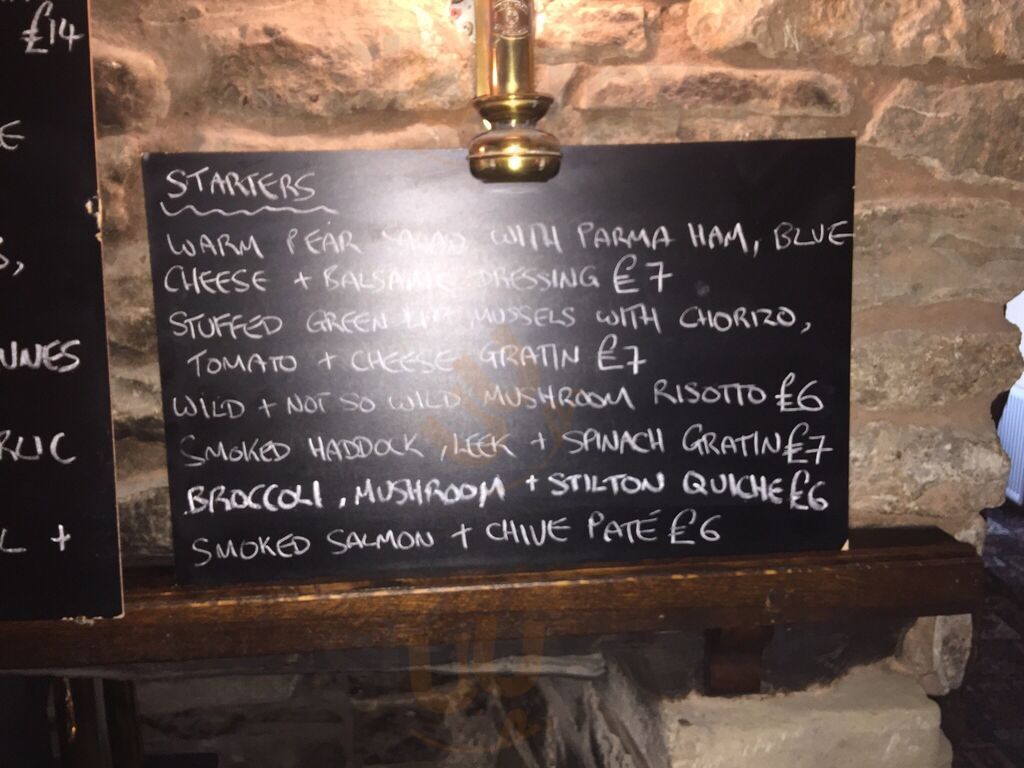 £14
E
S,
UNES
RLIC
L +
STARTERS
WARM PEAR SALAD WITH PARMA HAM, BLUE
CHEESE + BALSAMIC DRESSING £7
STUFFED GREEN LIP MUSSELS WITH CHORIZO,
TOMATO + CHEESE GRATIN £7
WILD + NOT SO WILD MUSHROOM RISOTTO £6
SMOKED HADDOCK, LEEK + SPINACH GRATIN £7
BROCCOLI, MUSHROOM + STILTON QUICHE £6
SMOKED SALMON + CHIVE PATÉ £6